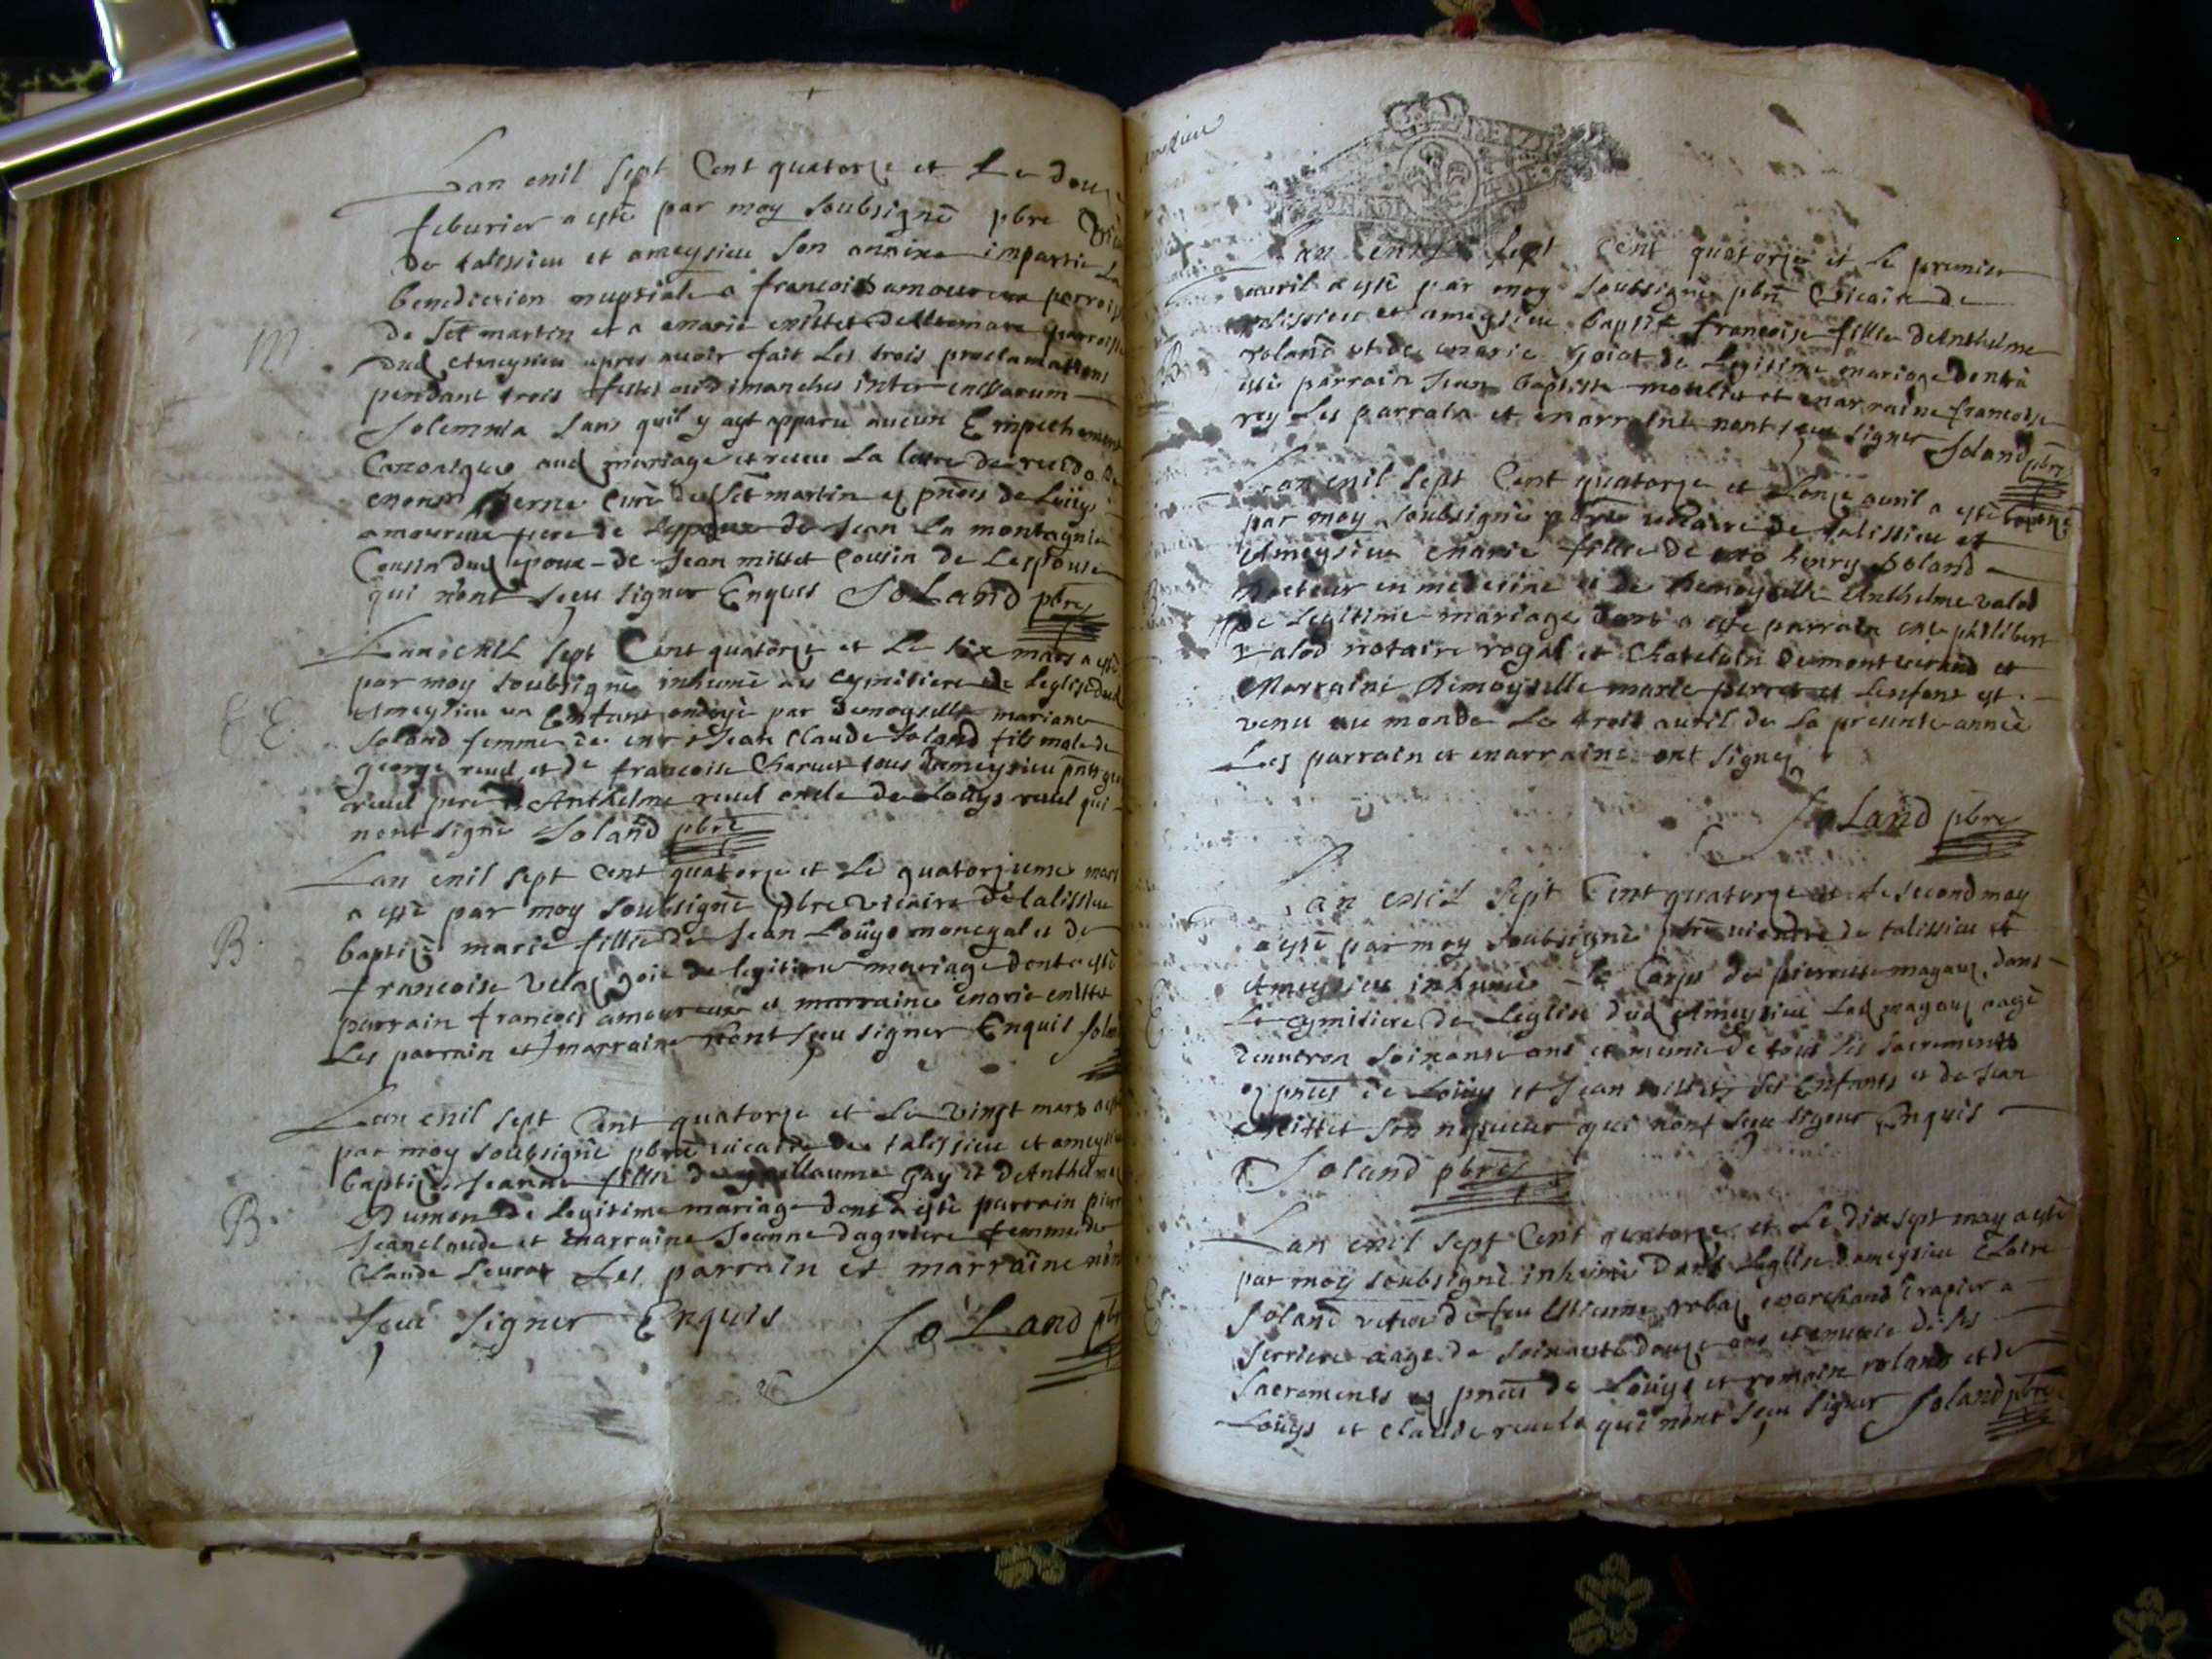 Lan mil sept Cent quatorze et Le douze
feburier a esté par moy soubsigné pbre
de talissieu et ameysieu son annixe imparti La
benediction nuptiale a francois amoureux parrois
de St martin et a marie millet
dud Ameysieu apres avoir fait Les trois proclamations
pendant trois festes ou dimanches inter missarum
Solemnia sans quil y ayt apparu aucun Empechement
Canonique aud mariage et receu La lettre de
monsr perne Curé de St martin es pnces de Loüys
amoureux frere de Lespoux de Jean La montagnie
Cousin dud epoux de Jean millet Cousin de Lespouse
qui nont sceu signer Enquis SoLand pbre
M
Lan mil sept Cent quatorze et Le six mars a esté
par moy soubsigné inhumé au Cymitiere de Leglise dud
Ameysieu un Enfant ondoyé par Demoyselle mariane
Soland femme de mr Jean Claude Soland fils male de
george revel et de francoise Charvet tous dameysieu
revel pere Anthelme revel oncle de Loüys revel qui
nont signé Soland pbre
E E
Lan mil sept Cent quatorze et Le quatorzieme mars
a esté par moy soubsigné pbre vicaire de talissieu
baptizé marie fille de Jean Loüys monegal et de
francoise de legitime mariage dont a esté
parrain francois amoureux et marraine marie millet
Les parrain et marraine nont sceu signer Enquis
B
Lan mil sept Cent quatorze et Le vingt mars a esté
par moy soubsigné pbre vicaire de talissieu et ameysieu
baptizé Jeanne fille de guillaume Gay et dAnthelme
Dumon de Legitime mariage dont a esté parrain
Jeanclaude et marraine Jeanne femme de
Claude Les parrain et marraine nont
sceu signer Enquis SoLand pbre
B
Lan mil sept Cent quatorze et Le premier
avril a esté par moy soubsigné pbre vicaire de
talissieu et ameysieu baptisé francoise fille dAnthelme
roland et de marie goiat de Legitime mariage dont a
esté parrain Jean baptiste mollet et marraine francoise
rey Les parrain et marraine nont sceu signer Soland pbre
B
Lan mil sept Cent quatorze et Lonze avril a esté baptizé
par moy soubsigné pbre vicaire de talissieu et
Ameysieu marie fille de henry Soland
Docteur en medecine et de Demoyselle Anthelme valod
de Legitime mariage dont a esté parrain philibert
valod notaire royal et Chatelain et
Marraine Demoyselle marie perret et Lenfant est
venu au monde Le trois avril de La presente année
Les parrain et marraine ont signez
SoLand pbre
Lan mil sept Cent quatorze et Le second may
a esté par moy soubsigné pbre de talissieu et
Ameysieu inhumé le Corps de pierre magaux dans
Le cymitiere de Leglise dud Ameysieu Led magaux aagé
denviron soixante ans et munie de tous les sacrements
es pnces de Loüys et Jean ses Enfants et de Jean
Millet son nepveur qui nont sceu signer Enquis
Soland pbre
Lan mil sept Cent quatorze et Le dix sept may a esté
par moy soubsigné inhumé Dans Leglise dameysieu Claire
Soland vefve de feu Etienne marchand
aagé de soixante douze ans et munie de ses
Sacrements es pnces de Loüys et romain roland et de
Loüys et Claude revel qui nont sceu signer Soland pbre